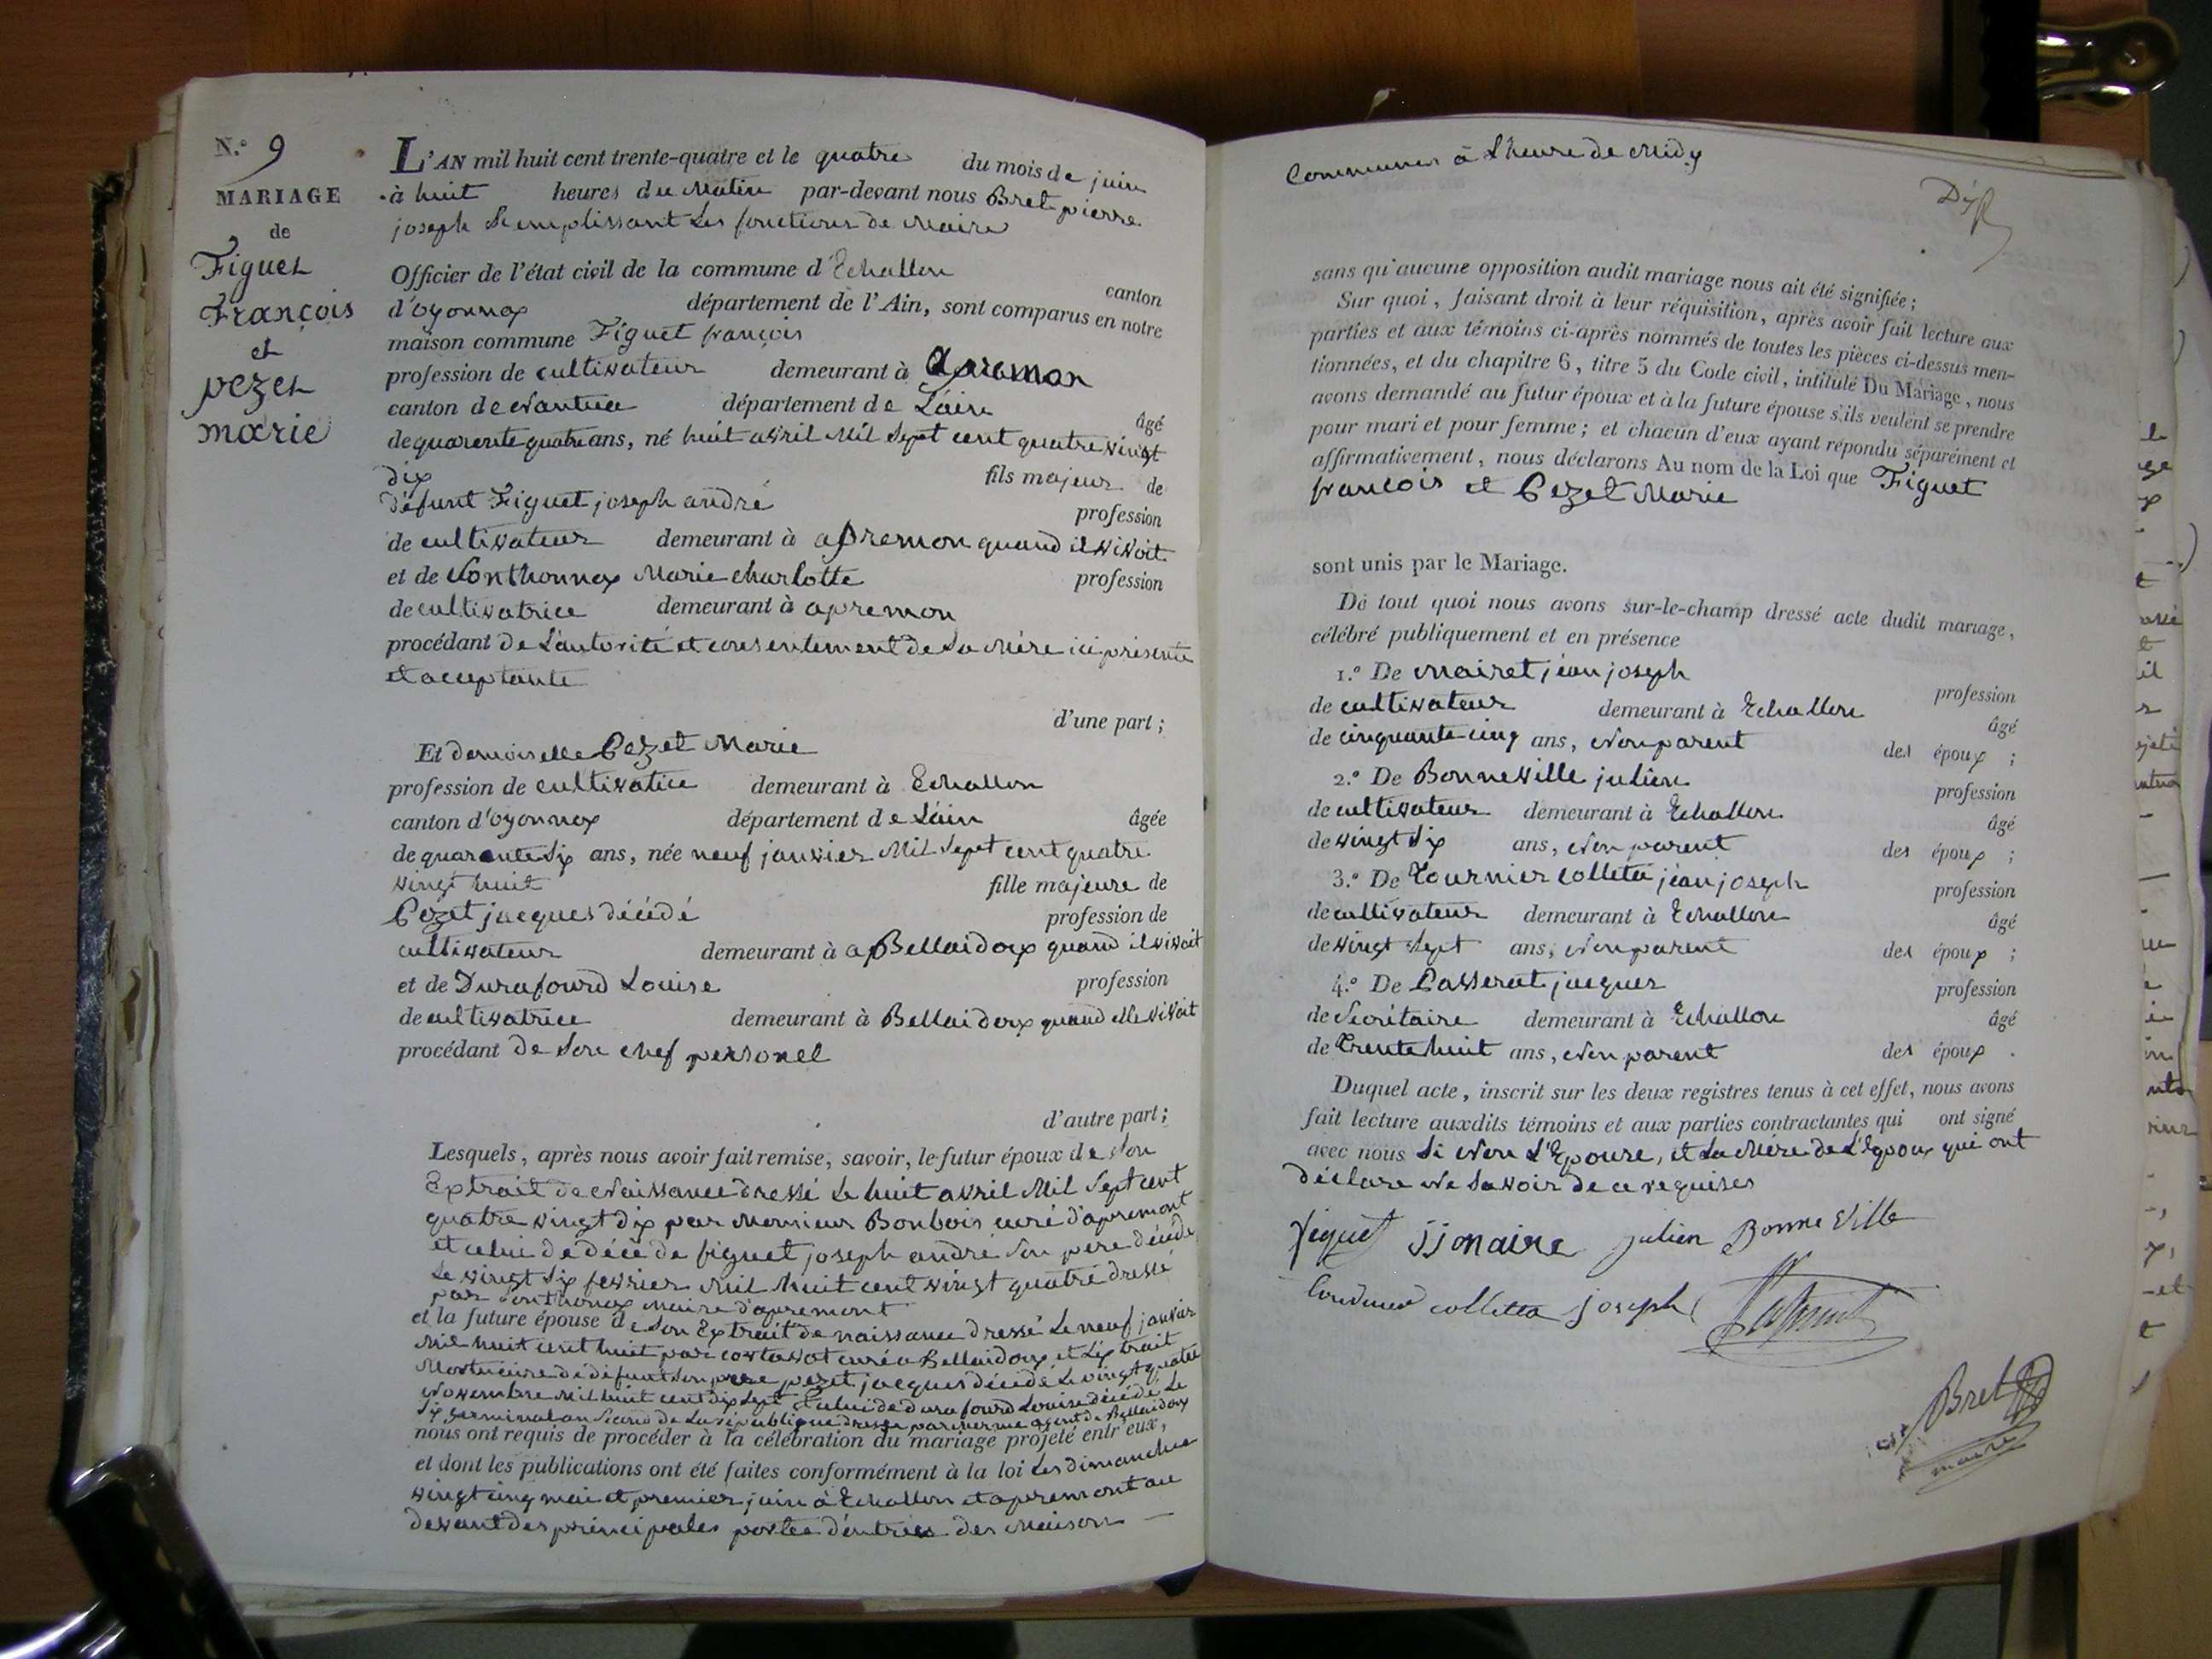 N.º 9
MARIAGE
de
Figuet
François
et
pezet
marie
L'AN mil huit cent trente-quatre et le quatre du mois de juin
à huit heures du Matin par-devant nous Bret pierre
joseph Remplissant Les fonctions de Maire
Officier de l'état civil de la commune d'Echallon canton
d'oyonnax département de l'Ain, sont comparus en notre
maison commune Figuet françois
profession de cultivateur demeurant à apremon
canton de Nantua département de L'ain âgé
de quarente quatre ans, né huit avril Mil Sept cent quatre vingt
dix fils majeur de
défunt Figuet joseph andré profession
de cultivateur demeurant à apremon quand il vivoit
et de Ponthonnax Marie charlotte profession
de cultivatrice demeurant à apremon
procédant de L'autorité et consentement de Sa Mère ici présente
et acceptante
d'une part ;
Et demoiselle Pezet Marie
profession de cultivatice demeurant à Echallon
canton d'oyonnax département de L'ain âgée
de quarante Six ans, née neuf janvier Mil Sept cent quatre
vingt huit fille majeure de
Pezet jacques décédé profession de
cultivateur demeurant à a Bellaidoux quand il vivoit
et de Durafourd Louise profession
de cultivatrice demeurant à Bellaidoux quand elle vivoit
procédant de Son chef personel
d'autre part ;
Lesquels, après nous avoir fait remise, savoir, le futur époux de Son
Extrait de Naissance dressé Le huit avril Mil Sept cent
quatre vingt dix par Monsieur Bonbois curé d'apremont
et celui de décé de figuet joseph andré Son père décédé
Le vingt Six fevrier Mil huit cent vingt quatre dressé
par Ponthonax Maire d'apremont
et la future épouse de Son Extrait de naissance dressé Le neuf janvier
Mil huit cent huit par curé a Bellaidoux et Extrait
Mortuaire de défunt Son père pezet jacques décédé Le vingt quatre
Novembre Mil huit cent dix Sept Et celui de durafourd Louise décédé Le
Six germinal an Second de La république dressé par agent de Bellaidoux
nous ont requis de procéder à la célébration du mariage projeté entr'eux,
et dont les publications ont été faites conformément à la loi Les dimanche
vingt cinq mai et premier juin à Echallon et apremont au
devant des principales portes d'entrées des Maison
Communes à L'heure de Midy
sans qu'aucune opposition audit mariage nous ait été signifiée ;
Sur quoi, faisant droit à leur réquisition, après avoir fait lecture aux
parties et aux témoins ci-après nommés de toutes les pièces ci-dessus men-
tionnées, et du chapitre 6, titre 5 du Code civil, intitulé Du Mariage, nous
avons demandé au futur époux et à la future épouse s'ils veulent se prendre
pour mari et pour femme ; et chacun d'eux ayant répondu séparément et
affirmativement, nous déclarons Au nom de la Loi que Figuet
francois et Pezet Marie
sont unis par le Mariage.
De tout quoi nous avons sur-le-champ dressé acte dudit mariage,
célébré publiquement et en présence
1.º De Mairet jean joseph profession
de cultivateur demeurant à Echallon âgé
de cinquante cinq ans, Non parent des époux ;
2.º De Bonneville julien profession
de cultivateur demeurant à Echallon âgé
de vingt Six ans, Non parent des époux ;
3.º De Tournier colleta jean joseph profession
de cultivateur demeurant à Echallon âgé
de vingt Sept ans, Non parent des époux ;
4.º De Passerat jacques profession
de Secrétaire demeurant à Echallon âgé
de Trente huit ans, Non parent des époux .
Duquel acte, inscrit sur les deux registres tenus à cet effet, nous avons
fait lecture auxdits témoins et aux parties contractantes qui ont signé
avec nous Si Non L'Epouse, et La Mère de L'Epoux qui ont
déclare Ne Savoir de ce requises
figuet jjmaire julien Bonneville
colletta joseph
Bret
maire